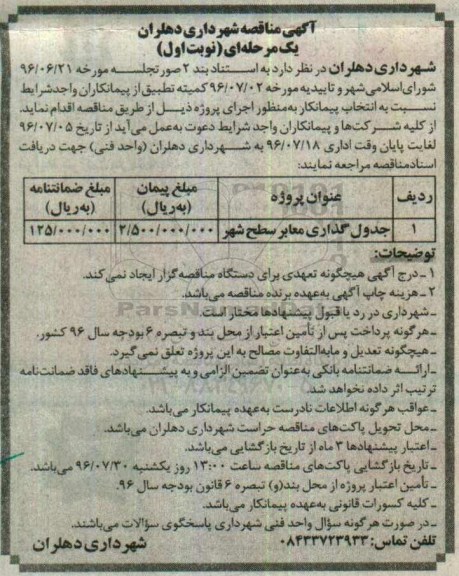 آگهی مناقصه شهرداری دهلران
یک مرحله‌ای (نوبت اول)
شهرداری دهلران در نظر دارد به استناد بند ۲ صورتجلسه مورخه ۹۶/۰۶/۲۱
شورای اسلامی شهر و تاییدیه مورخه ۹۶/۰۷/۰۲ کمیته تطبیق از پیمانکاران واجد شرایط
نسبت به انتخاب پیمانکار به منظور اجرای پروژه ذیل از طریق مناقصه اقدام نماید.
از کلیه شرکت‌ها و پیمانکاران واجد شرایط دعوت به عمل می‌آید از تاریخ ۹۶/۰۷/۰۵
لغایت پایان وقت اداری ۹۶/۰۷/۱۸ به شهرداری دهلران (واحد فنی) جهت دریافت
اسناد مناقصه مراجعه نمایند:
ردیف عنوان پروژه مبلغ پیمان (به ریال) مبلغ ضمانتنامه (به ریال)
۱ جدول گذاری معابر سطح شهر ۲/۵۰۰/۰۰۰/۰۰۰ ۱۲۵/۰۰۰/۰۰۰
توضیحات:
۱ـ درج آگهی هیچگونه تعهدی برای دستگاه مناقصه‌گزار ایجاد نمی‌کند.
۲ـ هزینه چاپ آگهی به عهده برنده مناقصه می‌باشد.
ـ شهرداری در رد یا قبول پیشنهادها مختار است.
ـ هرگونه پرداخت پس از تأمین اعتبار از محل بند و تبصره ۶ بودجه سال ۹۶ کشور.
ـ هیچگونه تعدیل و مابه‌التفاوت مصالح به این پروژه تعلق نمی‌گیرد.
ـ ارائه ضمانتنامه بانکی به عنوان تضمین الزامی و به پیشنهادهای فاقد ضمانت‌نامه
ترتیب اثر داده نخواهد شد.
ـ عواقب هرگونه اطلاعات نادرست به عهده پیمانکار می‌باشد.
ـ محل تحویل پاکت‌های مناقصه حراست شهرداری دهلران می‌باشد.
ـ اعتبار پیشنهادها ۳ ماه از تاریخ بازگشایی می‌باشد.
ـ تاریخ بازگشایی پاکت‌های مناقصه ساعت ۱۳:۰۰ روز یکشنبه ۹۶/۰۷/۳۰ می‌باشد.
ـ تأمین اعتبار پروژه از محل بند(و) تبصره ۶ قانون بودجه سال ۹۶.
ـ کلیه کسورات قانونی به عهده پیمانکار می‌باشد.
ـ در صورت هرگونه سؤال واحد فنی شهرداری پاسخگوی سؤالات می‌باشند.
تلفن تماس: ۰۸۴۳۳۷۲۳۹۳۳ شهرداری دهلران